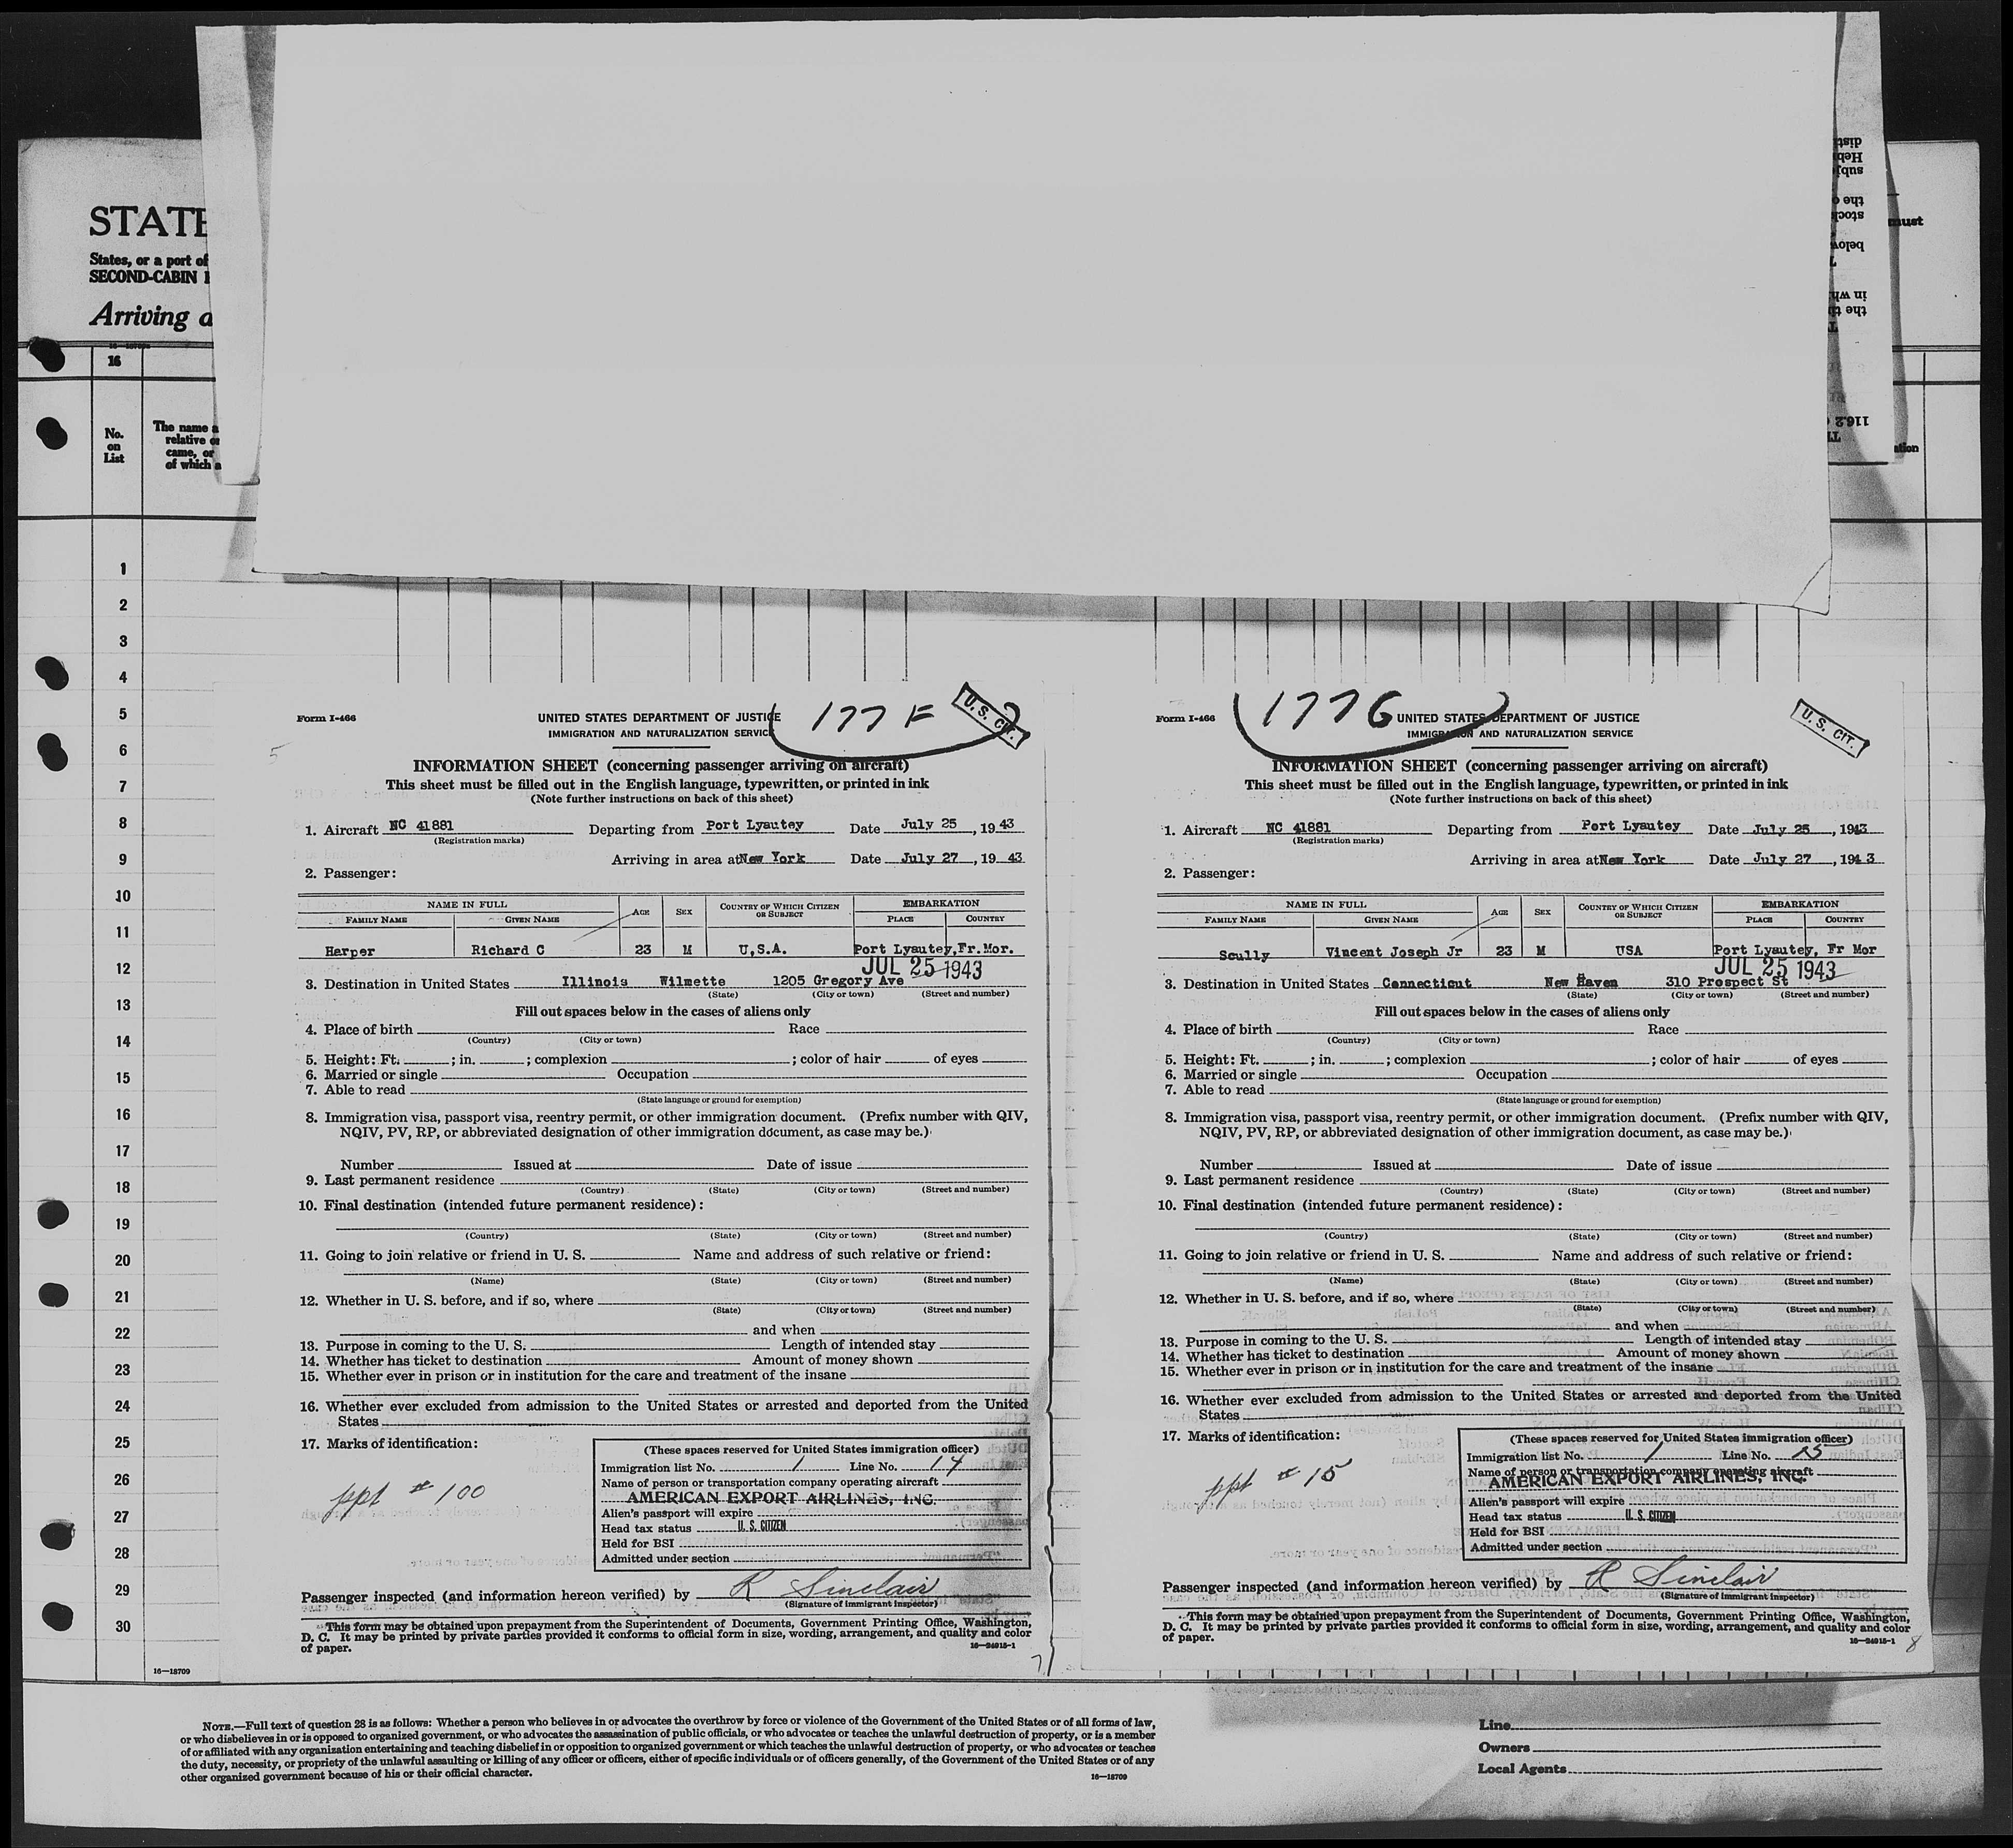 STATE
States, or a port of
SECOND-CABIN
Arriving
16
No.
on
List
The name
relative
came, or
of which a
1
2
3
4
5
6
7
8
9
10
11
12
13
14
15
16
17
18
19
20
21
22
23
24
25
26
27
28
29
30
16—18709
must
116.2
Form I-466
177 F
U. S. CIT.
UNITED STATES DEPARTMENT OF JUSTICE
IMMIGRATION AND NATURALIZATION SERVICE
INFORMATION SHEET (concerning passenger arriving on aircraft)
This sheet must be filled out in the English language, typewritten, or printed in ink
(Note further instructions on back of this sheet)
1. Aircraft NC 41881 Departing from Port Lyautey Date July 25, 1943
(Registration marks)
Arriving in area at New York Date July 27, 1943
2. Passenger:
NAME IN FULL AGE SEX COUNTRY OF WHICH CITIZEN OR SUBJECT EMBARKATION
FAMILY NAME GIVEN NAME PLACE COUNTRY
Harper Richard C 23 M U.S.A. Port Lyautey, Fr. Mor.
JUL 25 1943
3. Destination in United States Illinois Wilmette 1205 Gregory Ave
(State) (City or town) (Street and number)
Fill out spaces below in the cases of aliens only
4. Place of birth Race
(Country) (City or town)
5. Height: Ft. ; in. ; complexion ; color of hair of eyes
6. Married or single Occupation
7. Able to read
(State language or ground for exemption)
8. Immigration visa, passport visa, reentry permit, or other immigration document. (Prefix number with QIV,
NQIV, PV, RP, or abbreviated designation of other immigration document, as case may be.)
Number Issued at Date of issue
9. Last permanent residence
(Country) (State) (City or town) (Street and number)
10. Final destination (intended future permanent residence):
(Country) (State) (City or town) (Street and number)
11. Going to join relative or friend in U. S. Name and address of such relative or friend:
(Name) (State) (City or town) (Street and number)
12. Whether in U. S. before, and if so, where
(State) (City or town) (Street and number)
and when
13. Purpose in coming to the U. S. Length of intended stay
14. Whether has ticket to destination Amount of money shown
15. Whether ever in prison or in institution for the care and treatment of the insane
16. Whether ever excluded from admission to the United States or arrested and deported from the United
States
17. Marks of identification:
ppt # 100
(These spaces reserved for United States immigration officer)
Immigration list No. 1 Line No. 14
Name of person or transportation company operating aircraft
AMERICAN EXPORT AIRLINES, INC.
Alien's passport will expire
Head tax status U. S. CITIZEN
Held for BSI
Admitted under section
Passenger inspected (and information hereon verified) by R Sinclair
(Signature of immigrant inspector)
This form may be obtained upon prepayment from the Superintendent of Documents, Government Printing Office, Washington,
D. C. It may be printed by private parties provided it conforms to official form in size, wording, arrangement, and quality and color
of paper. 16—24915-1
7
Form I-466
177 G
U. S. CIT.
UNITED STATES DEPARTMENT OF JUSTICE
IMMIGRATION AND NATURALIZATION SERVICE
INFORMATION SHEET (concerning passenger arriving on aircraft)
This sheet must be filled out in the English language, typewritten, or printed in ink
(Note further instructions on back of this sheet)
1. Aircraft NC 41881 Departing from Port Lyautey Date July 25, 1943
(Registration marks)
Arriving in area at New York Date July 27, 1943
2. Passenger:
NAME IN FULL AGE SEX COUNTRY OF WHICH CITIZEN OR SUBJECT EMBARKATION
FAMILY NAME GIVEN NAME PLACE COUNTRY
Scully Vincent Joseph Jr 23 M USA Port Lyautey, Fr Mor
JUL 25 1943
3. Destination in United States Connecticut New Haven 310 Prospect St
(State) (City or town) (Street and number)
Fill out spaces below in the cases of aliens only
4. Place of birth Race
(Country) (City or town)
5. Height: Ft. ; in. ; complexion ; color of hair of eyes
6. Married or single Occupation
7. Able to read
(State language or ground for exemption)
8. Immigration visa, passport visa, reentry permit, or other immigration document. (Prefix number with QIV,
NQIV, PV, RP, or abbreviated designation of other immigration document, as case may be.)
Number Issued at Date of issue
9. Last permanent residence
(Country) (State) (City or town) (Street and number)
10. Final destination (intended future permanent residence):
(Country) (State) (City or town) (Street and number)
11. Going to join relative or friend in U. S. Name and address of such relative or friend:
(Name) (State) (City or town) (Street and number)
12. Whether in U. S. before, and if so, where
(State) (City or town) (Street and number)
and when
13. Purpose in coming to the U. S. Length of intended stay
14. Whether has ticket to destination Amount of money shown
15. Whether ever in prison or in institution for the care and treatment of the insane
16. Whether ever excluded from admission to the United States or arrested and deported from the United
States
17. Marks of identification:
ppt # 15
(These spaces reserved for United States immigration officer)
Immigration list No. 1 Line No. 15
Name of person or transportation company operating aircraft
AMERICAN EXPORT AIRLINES, INC.
Alien's passport will expire
Head tax status U. S. CITIZEN
Held for BSI
Admitted under section
Passenger inspected (and information hereon verified) by R Sinclair
(Signature of immigrant inspector)
This form may be obtained upon prepayment from the Superintendent of Documents, Government Printing Office, Washington,
D. C. It may be printed by private parties provided it conforms to official form in size, wording, arrangement, and quality and color
of paper. 16—24915-1
8
NOTE.—Full text of question 28 is as follows: Whether a person who believes in or advocates the overthrow by force or violence of the Government of the United States or of all forms of law,
or who disbelieves in or is opposed to organized government, or who advocates the assassination of public officials, or who advocates or teaches the unlawful destruction of property, or is a member
of or affiliated with any organization entertaining and teaching disbelief in or opposition to organized government or which teaches the unlawful destruction of property, or who advocates or teaches
the duty, necessity, or propriety of the unlawful assaulting or killing of any officer or officers, either of specific individuals or of officers generally, of the Government of the United States or of any
other organized government because of his or their official character. 16—18709
Line
Owners
Local Agents